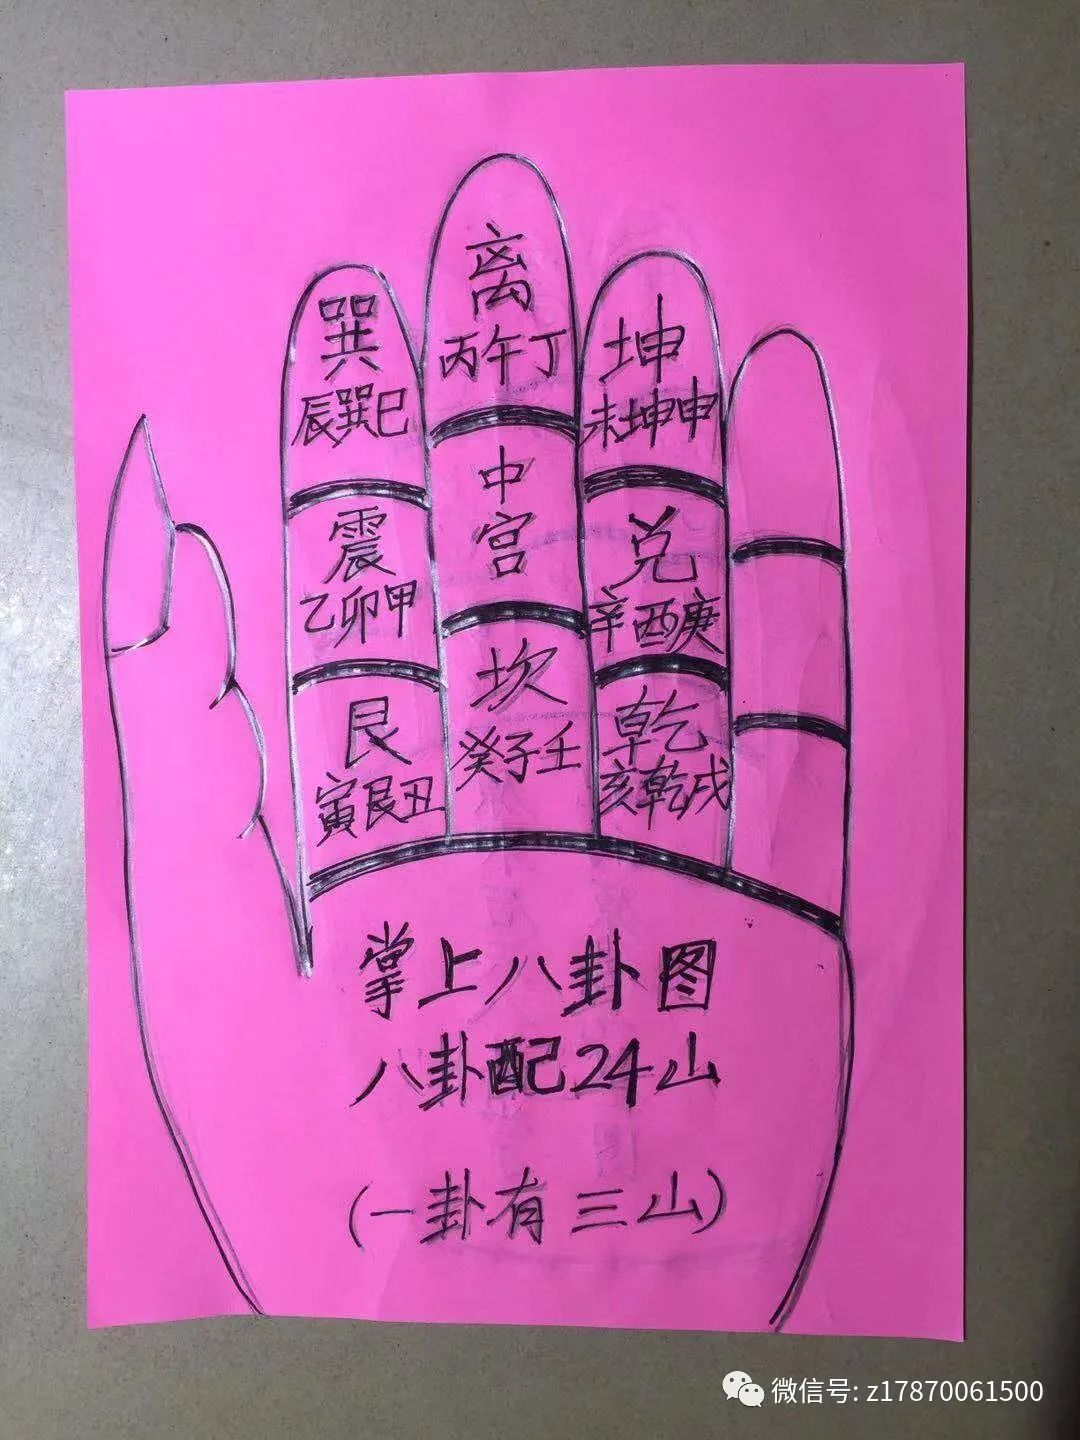 离
丙午丁
巽
辰巽巳
坤
未坤申
中
宫
震
乙卯甲
兑
辛酉庚
坎
癸子壬
艮
寅艮丑
乾
亥乾戌
掌上八卦图
八卦配24山
(一卦有三山)
微信号: z17870061500